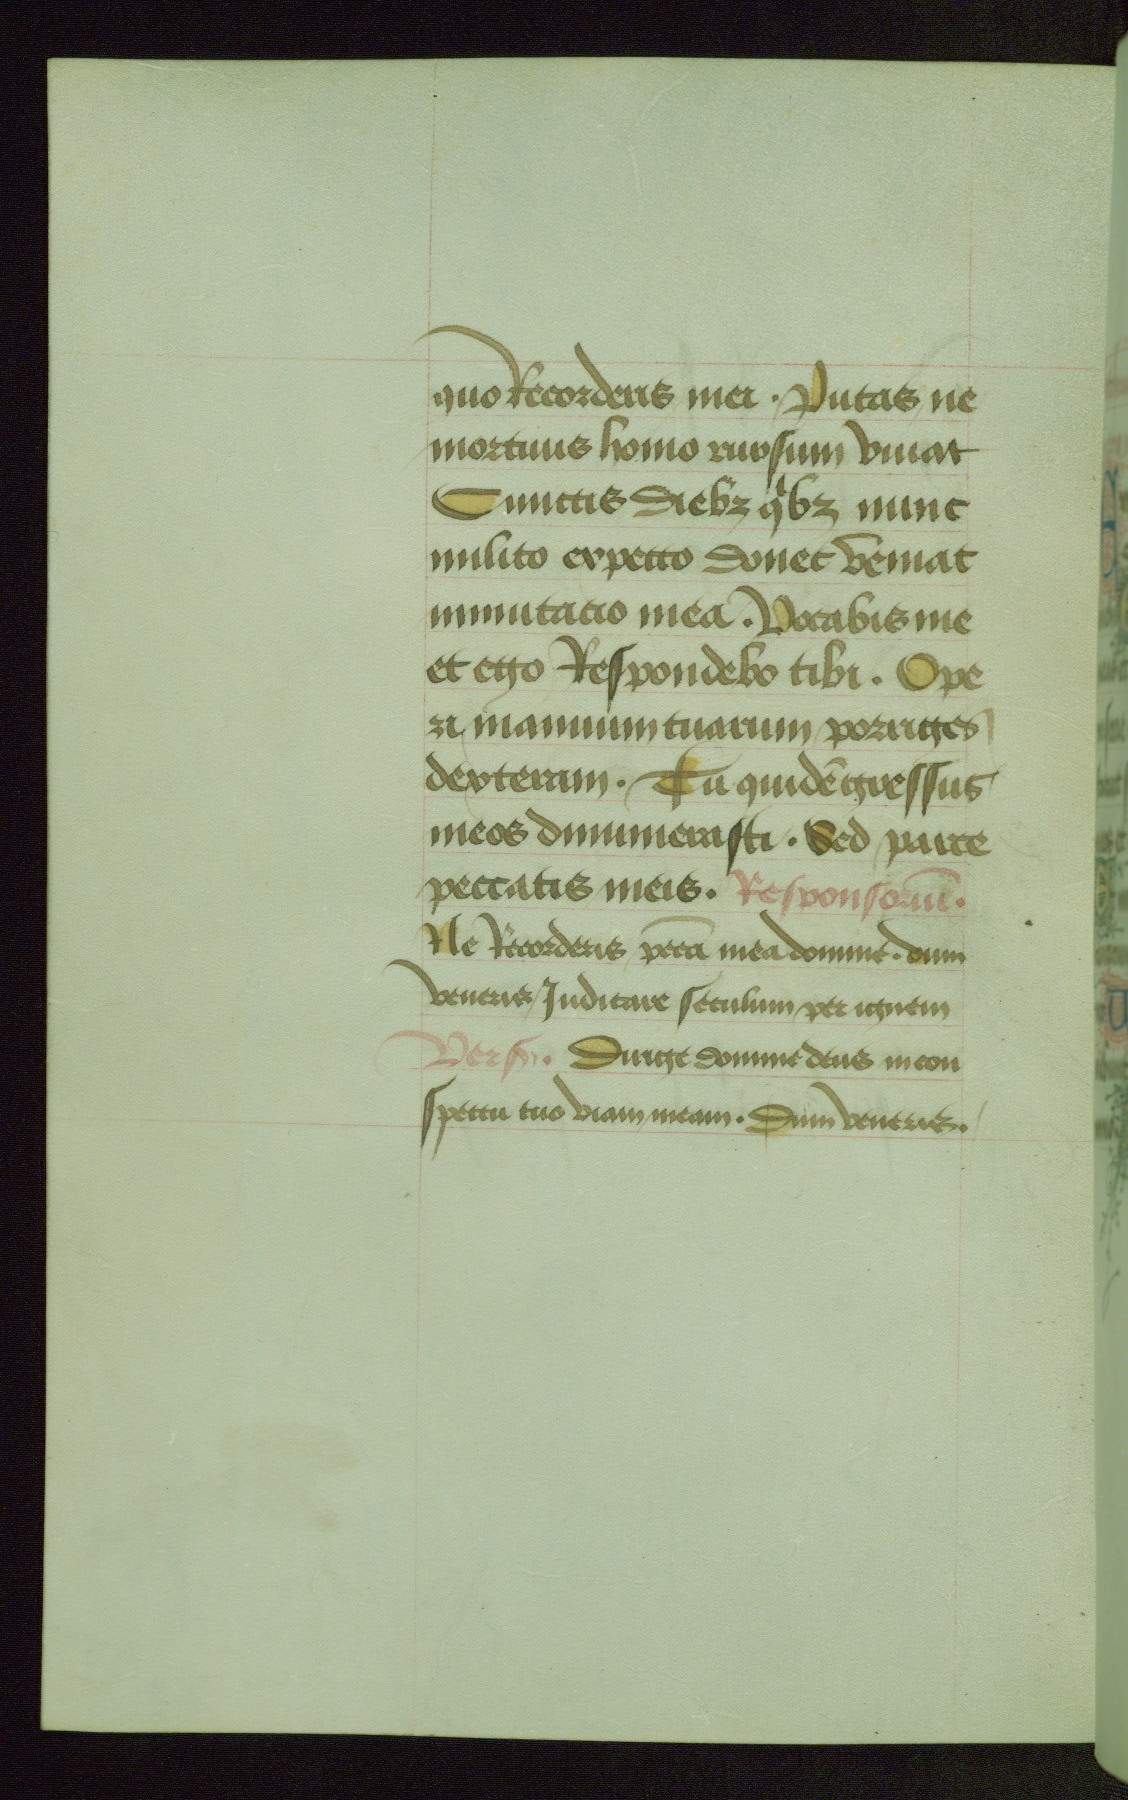 quo Recorderis mei . Putas ne
mortuus homo rursum viuat
Cunctis dieb₃ qͥb₃ nunc
milito expecto donec vēniat
inmutacio mea . Vocabis me
et ego Respondebo tibi . Ope
ri manuum tuarum porriges
dexteram . Tu quidē gressus
meos dinumerasti . Sed parce
peccatis meis . Responsoriū .
Ne Recorderis pcc̄a mea domine . dum
veneris Iudicare seculum per ignem
Versꝰ . Dirige domine deus in con
spectu tuo viam meam . Dum veneris .